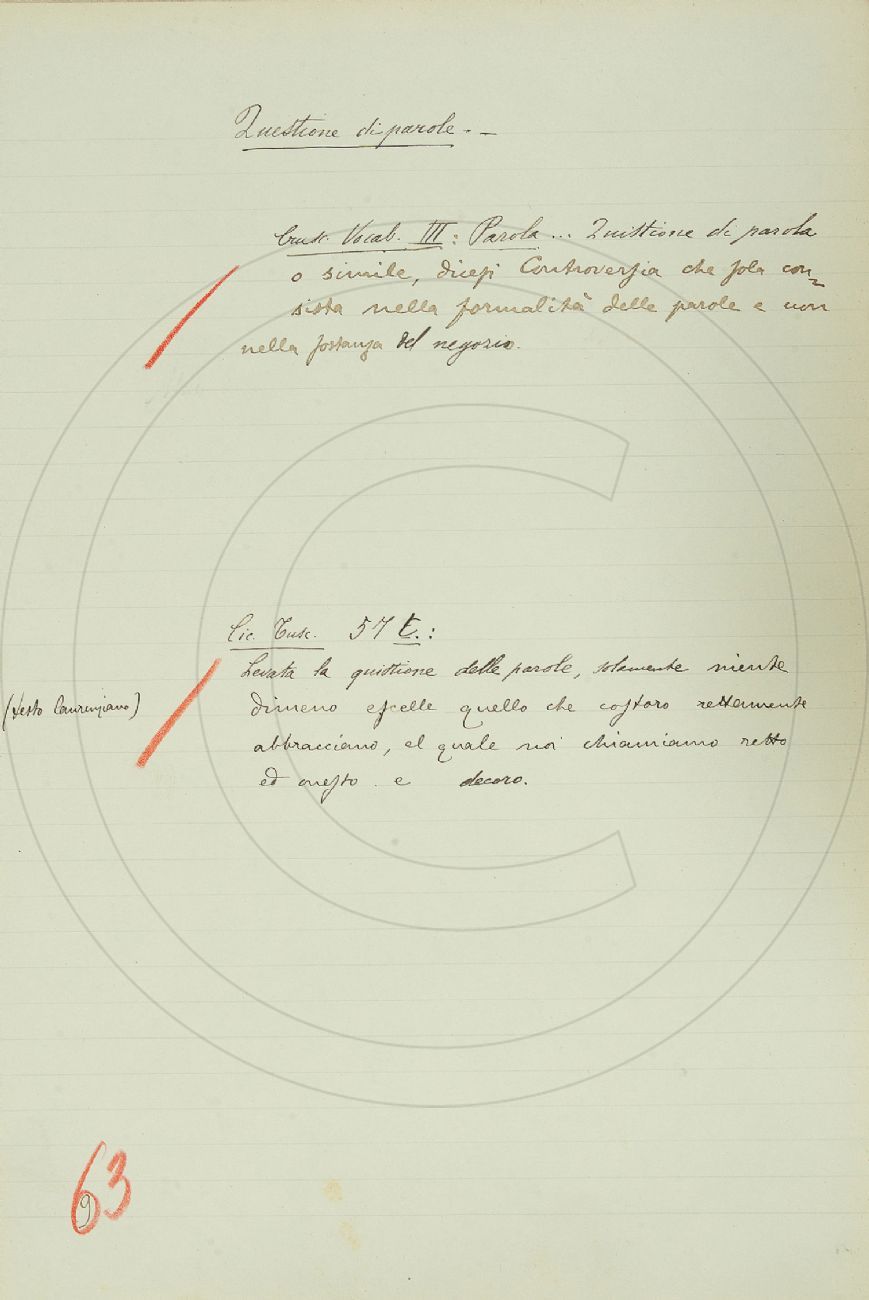 Questione di parole. —
Crusc. Vocab. III: Parola... Quistione di parola
o simile, dicesi Controversia che sola con-
sista nella formalità delle parole e non
nella sostanza del negozio.
Cic. Tusc. 57 t.:
Levata la quistione delle parole, solamente niente
(testo laurenziano)
dimeno escelle quello che costoro rettamente
abbracciano, el quale noi chiamiamo retto
ed onesto e decoro.
63
9